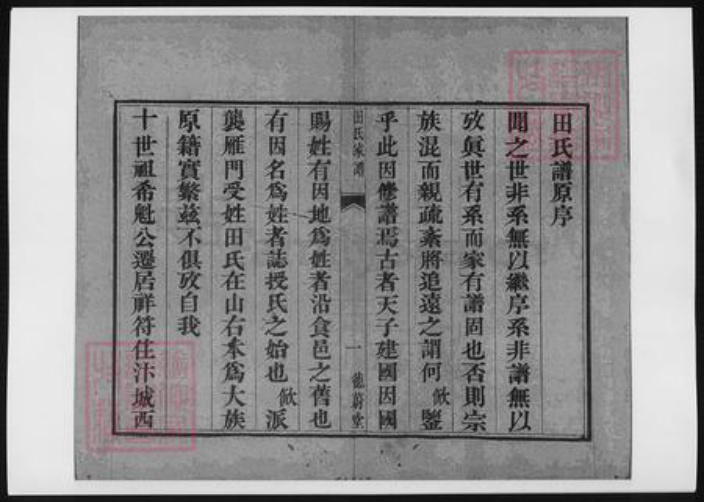 田氏譜原序
聞之世非系無以繼序系非譜無以
攷眞世有系而家有譜固也否則宗
族混而親疏紊將追遠之謂何歟鑒
乎此因修譜焉古者天子建國因國
田氏家譜 一 德蔚堂
賜姓有因地爲姓者沿食邑之舊也
有因名爲姓者誌授氏之始也歟派
襲雁門受姓田氏在山右本爲大族
原籍實繁茲不俱攷自我
十世祖希魁公遷居祥符住汴城西